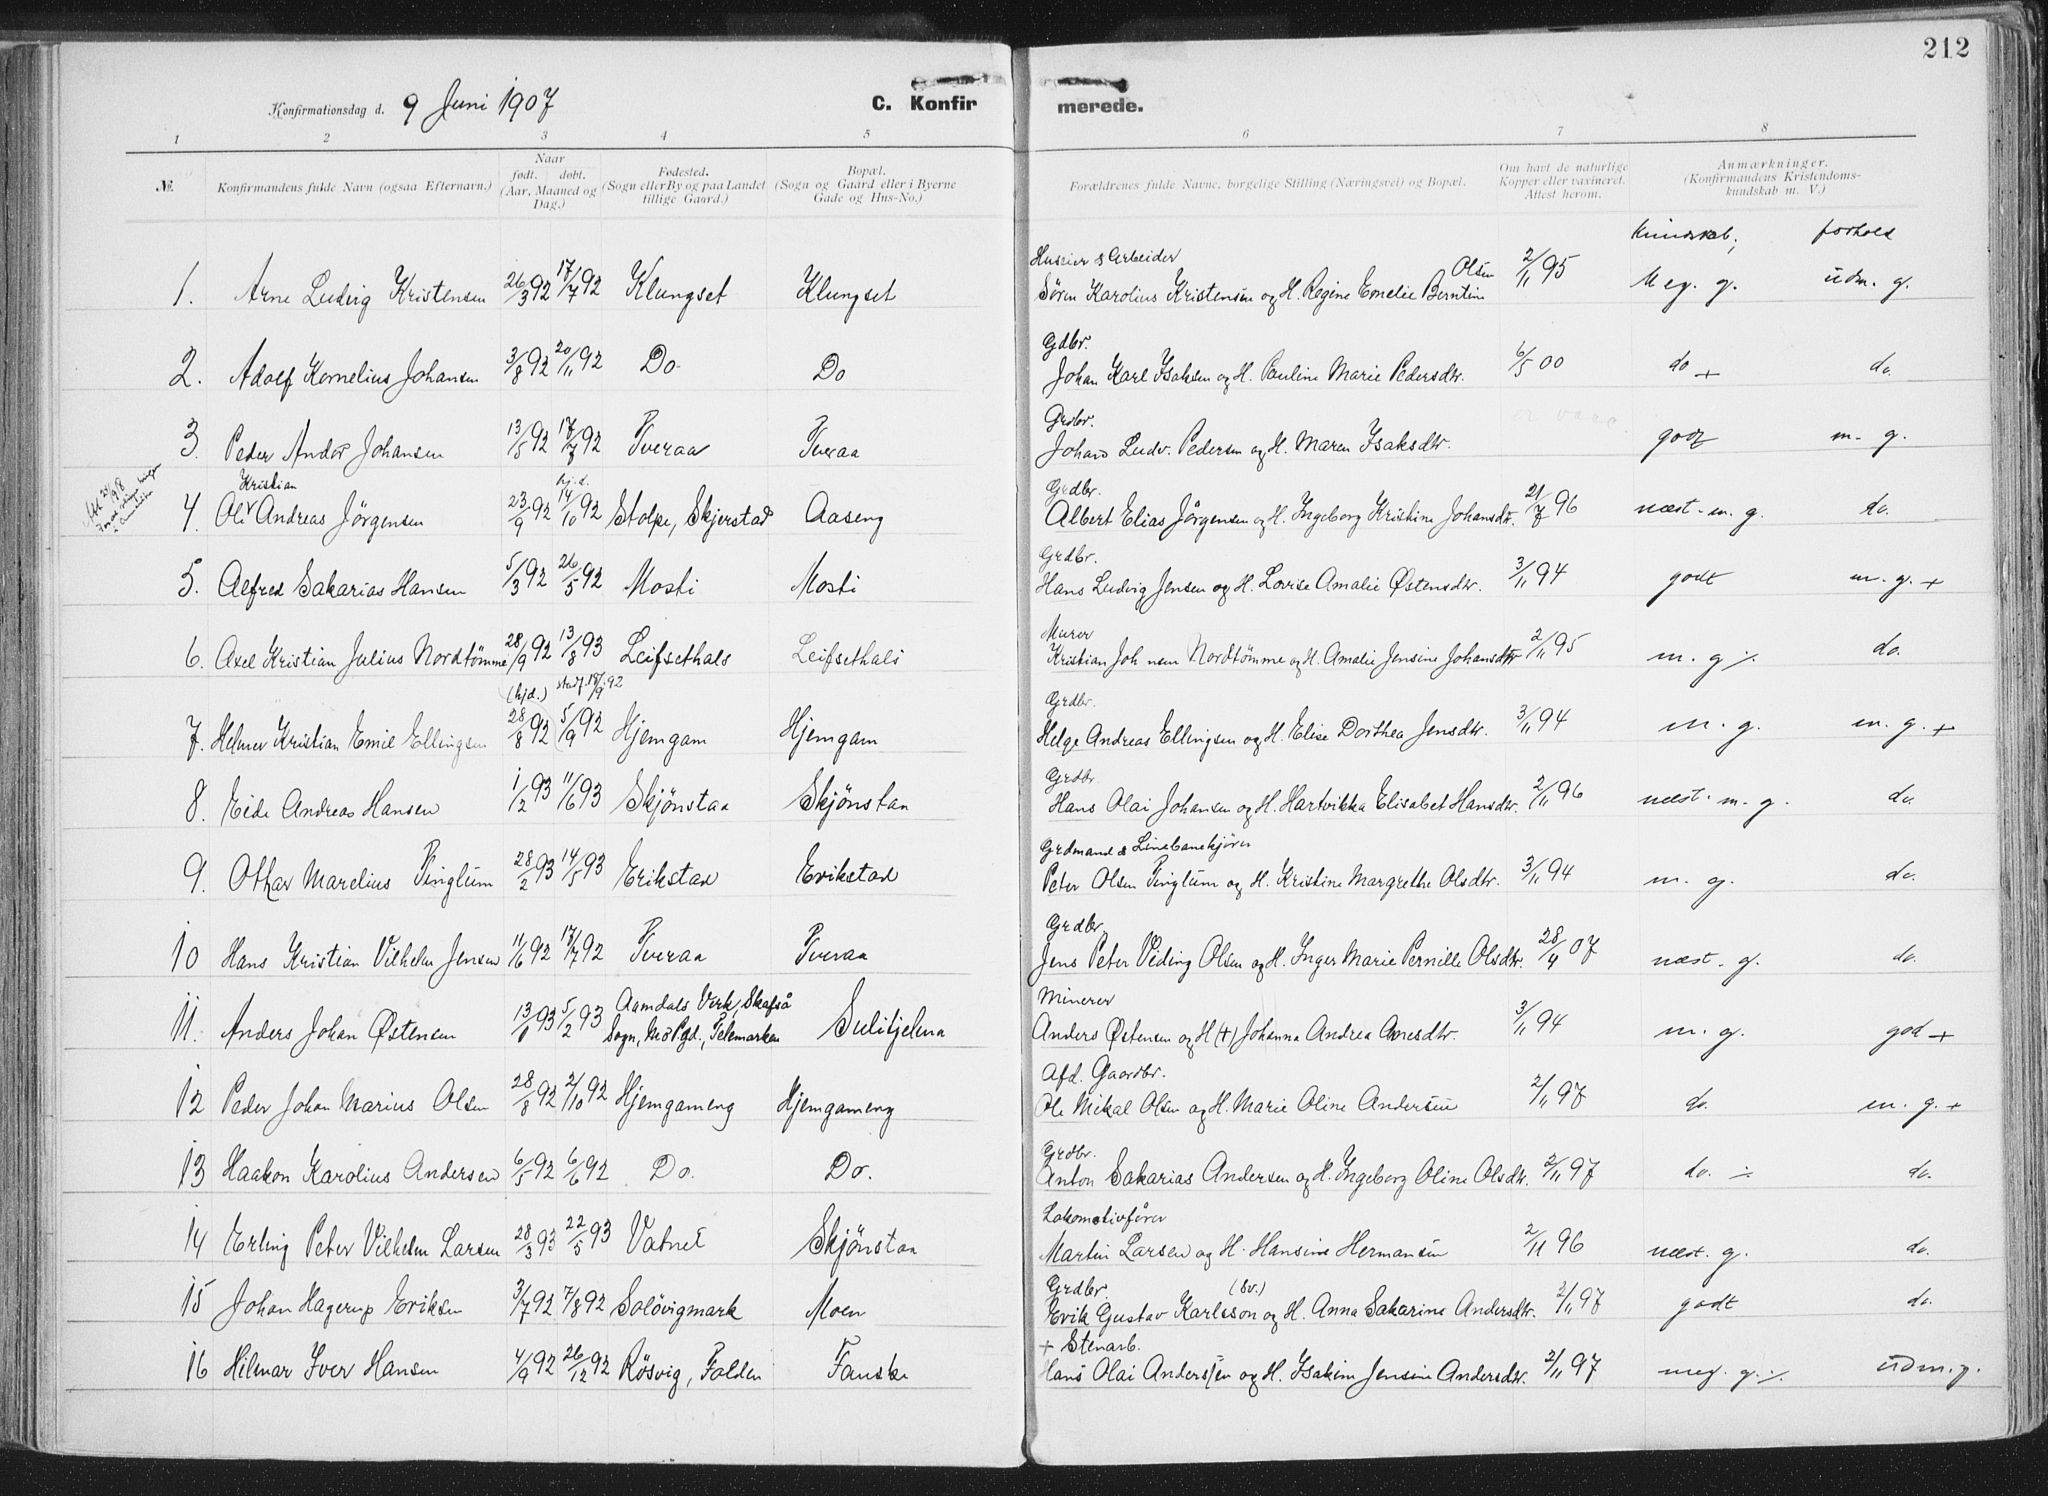 212
Konfirmationsdag d. 9 Juni 1907 C. Konfirmerede.
1 2 3 4 5 6 7 8
№. Konfirmandens fulde Navn (ogsaa Efternavn.) Naar født. døbt. (Aar, Maaned og Dag.) Fødested. (Sogn eller By og paa Landet tillige Gaard.) Bopæl. (Sogn og Gaard eller i Byerne Gade og Hus-No.) Forældrenes fulde Navne, borgelige Stilling (Næringsvei) og Bopæl. Om havt de naturlige Kopper eller vaxineret. Attest herom. Anmærkninger. (Konfirmandens Kristendomskundskab m. V.)
kundskab; forhold
Huseier & Arbeider
1. Arne Ludvig Kristensen 26/3 92 17/7 92 Klungset Klungset Sören Karolius Kristensen og H. Regine Emelie Berntine Olsen 2/11 95 Meg. g. udm. g.
Gdbr.
2. Adolf Kornelius Johansen 3/8 92 20/11 92 Do Do Johan Karl Isaksen og H. Pauline Marie Pedersdtr. 6/5 00 do + do.
Grdbr.
3. Peder Andor Johansen 13/5 92 17/7 92 Tveraa Tveraa Johan Ludv. Pedersen og H. Maren Isaksdtr. godt m. g.
Kristian hj. d. Grdbr.
4. Oli Andreas Jörgensen 23/9 92 14/10 92 Stolpe, Skjerstad Aaseng Albert Elias Jörgensen og H. Ingeborg Kristine Johansdtr. 21/7 96 næst. m. g. do.
Grdbr.
5. Alfred Sakarias Hansen 5/3 92 26/5 92 Mosti Mosti Hans Ludvig Jensen og H. Lovise Amalie Østensdtr. 3/11 94 godt m. g. +
Murer
6. Axel Kristian Julius Nordtömme 28/9 92 13/8 93 Leifsethals Leifsethals Kristian Joh nsen Nordtömme og H. Amalie Jensine Johansdtr 2/11 95 m. g. ÷ do.
(hj d.) stadf. 18/9 92 Grdbr.
7. Helmer Kristian Emil Ellingsen 28/8 92 5/9 92 Hjemgam Hjemgam Helge Andreas Ellingsen og H. Elise Dorthea Jensdtr. 3/11 94 m. g. m. g. +
Grdbr.
8. Eide Andreas Hansen 1/2 93 11/6 93 Skjönstaa Skjönstaa Hans Olai Johansen og H. Hartvikka Elisabet Hansdtr. 2/11 96 næst. m. g. do.
Grdmand & Linebanekjörer
9. Othar Marelius Tinglum 28/2 93 14/5 93 Erikstad Erikstad Peter Olsen Tinglum og H. Kristine Margrethe Olsdtr. 3/11 94 m. g. do.
Grdbr.
10 Hans Kristian Vilhelm Jensen 11/6 92 17/7 92 Tveraa Tveraa Jens Peter Viding Olsen og H. Inger Marie Pernille Olsdtr. 28/4 07 næst. g. do.
Minerer
11. Anders Johan Østensen 13/1 93 5/2 93 Aamdals Verk, Skafså Sogn, Mo Pgd., Telemarken Sulitjelma Anders Østensen og H (+) Johanna Andrea Anesdtr. 3/11 94 m. g. god +
Afd. Gaardbr.
12 Peder Johan Marius Olsen 28/8 92 2/10 92 Hjemgameng Hjemgameng Ole Mikal Olsen og H. Marie Oline Andersen 2/11 97 do. m. g. +
Grdbr.
13 Haakon Karolius Andersen 6/5 92 6/6 92 Do. Do. Anton Sakarias Andersen og H. Ingeborg Oline Olsdtr. 2/11 97 do. ÷ do.
Lokomotivförer
14 Erling Peter Vilhelm Larsen 28/3 93 22/5 93 Vatnet Skjönstaa Martin Larsen og H. Hansine Hermansen 2/11 96 næst. g. do.
Grdbr. (Sv.)
15 Johan Hagerup Eriksen 3/7 92 7/8 92 Solövigmark Moen Erik Gustav Karlsson og H. Anna Sakarine Andersdtr. 2/11 97 godt do.
+ Stenarb.
16 Hilmar Iver Hansen 4/9 92 26/12 92 Rösvig, Folden Fauske Hans Olai Anderssen og H. Isakine Jensine Andersdtr. 2/11 97 meg. g. ÷ udm. g.